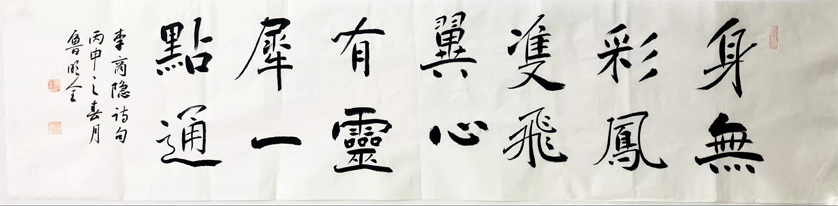 身無
彩鳳
雙飛
翼心
有靈
犀一
點通
李商隐诗句
丙申之春月
魯明全